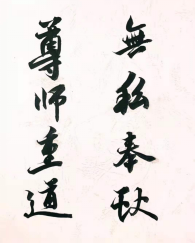 無私奉献
尊师重道